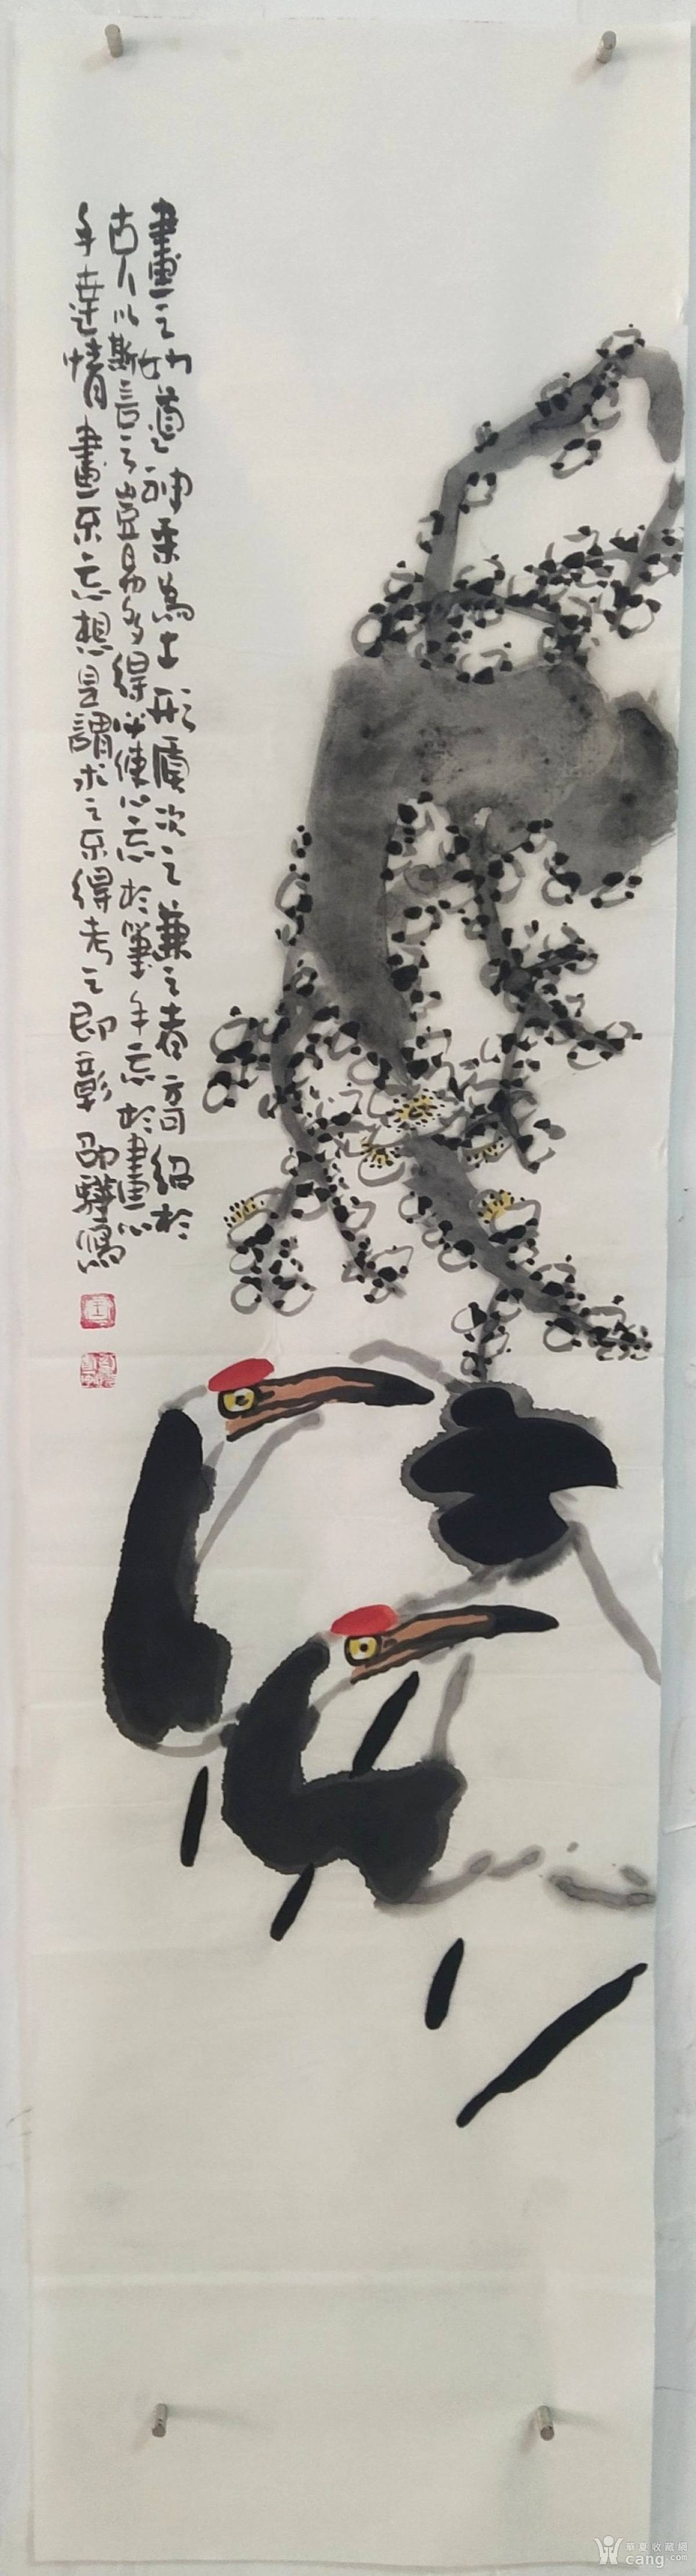 畫之妙道神采為上形质次之兼之者方可紹於
古人以斯言之豈易多得必使心忘於筆手忘於畫心
手達情畫不忘想是謂求之不得考之即彰 邵驊寫
華夏收藏網
cang.com